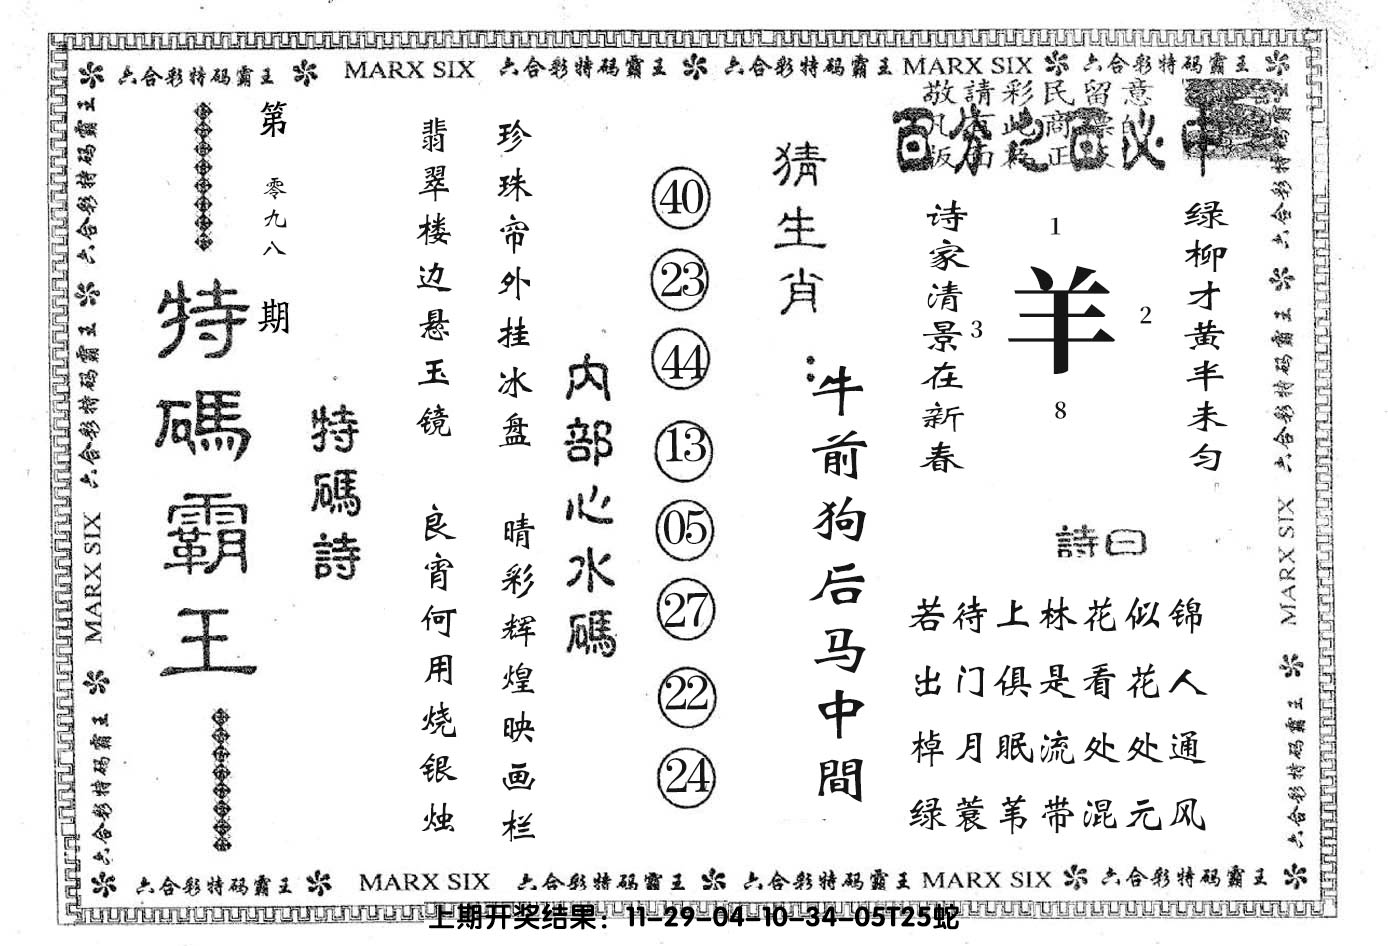 六合彩特码霸王 MARX SIX 六合彩特码霸王 六合彩特码霸王 MARX SIX 六合彩特码霸王
敬請彩民留意
百分之百必中
绿柳才黄半未匀
诗家清景在新春
1
羊
2
3
8
詩曰
若待上林花似锦
出门俱是看花人
棹月眠流处处通
绿蓑苇带混元风
猜生肖：牛前狗后马中間
40
23
44
13
05
27
22
24
内部心水碼
珍珠帘外挂冰盘 晴彩辉煌映画栏
翡翠楼边悬玉镜 良宵何用烧银烛
特碼詩
第零九八期
特碼霸王
六合彩特码霸王 六合彩特码霸王 MARX SIX 六合彩特码霸王
六合彩特码霸王 六合彩特码霸王 MARX SIX 六合彩特码霸王
六合彩特码霸王 MARX SIX 六合彩特码霸王 六合彩特码霸王 MARX SIX 六合彩特码霸王
上期开奖结果：11-29-04-10-34-05T25蛇